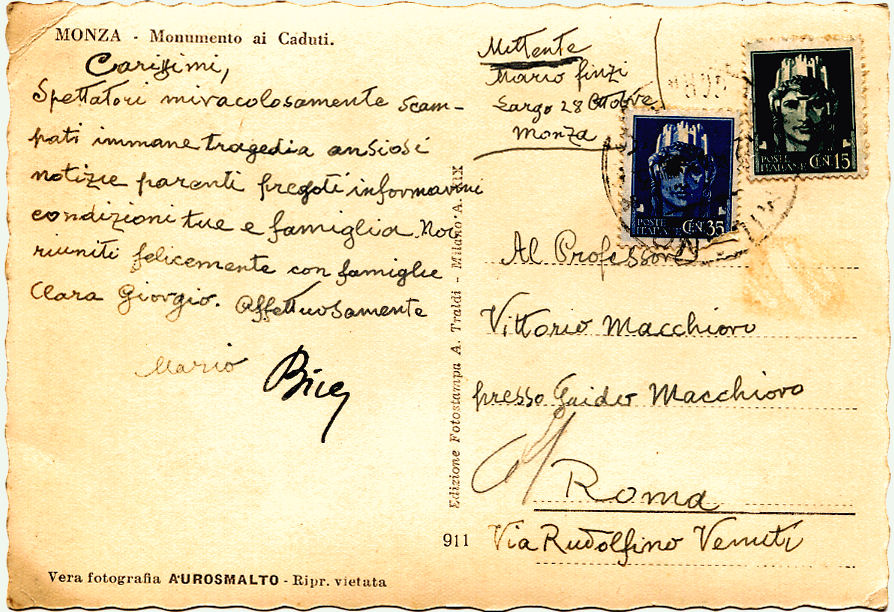 MONZA - Monumento ai Caduti.
Carissimi,
Spettatori miracolosamente scam-
pati immane tragedia ansiosi
notizie parenti pregoti informarmi
condizioni tue e famiglia. Noi
riuniti felicemente con famiglie
Clara Giorgio. Affettuosamente
Mario Bice
Vera fotografia AUROSMALTO - Ripr. vietata
Edizione Fotostampa A. Traldi - Milano
911
Mittente
Mario Finzi
Largo 28 Ottobre
Monza
POSTE ITALIANE CEN. 35
POSTE ITALIANE CEN. 15
Al Professore
Vittorio Macchioro
presso Guido Macchioro
Roma
Via Rudolfino Venuti